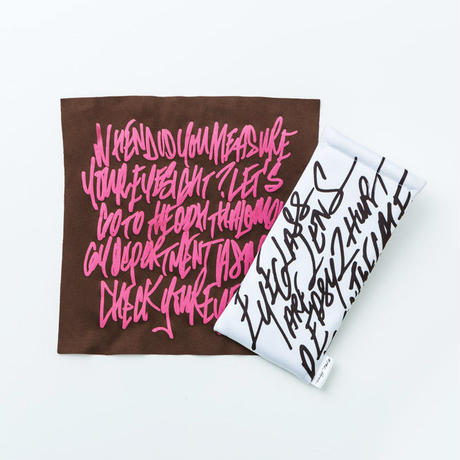 WHEN DID YOU MEASURE
YOUR EYESIGHT? LET'S
GO TO THE OPHTHALOMO
GY DEPARTMENT AND
CHECK YOUR EYE
EYEGLASS
LENS
ARE
HURT!